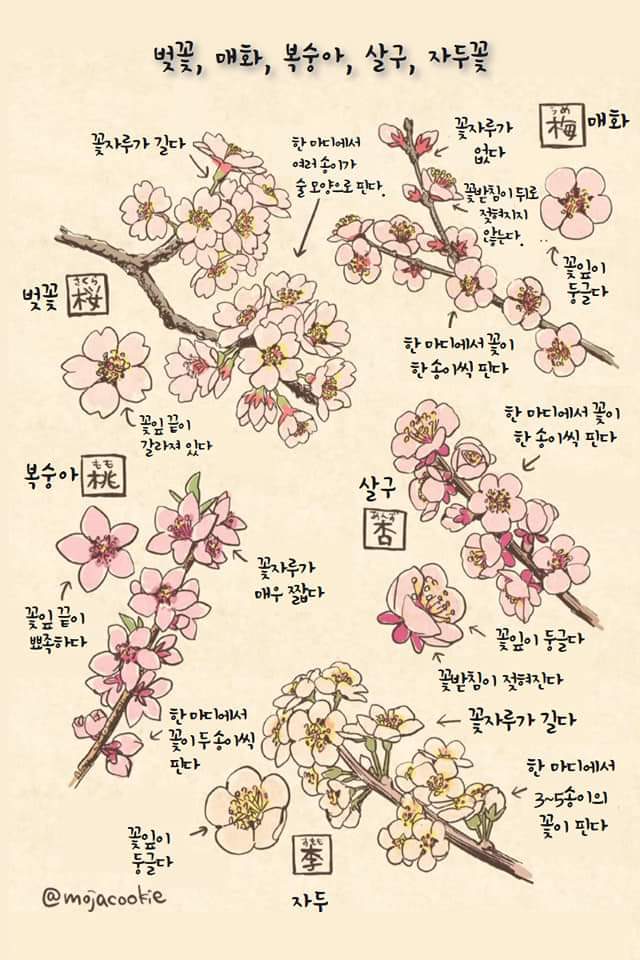 벚꽃, 매화, 복숭아, 살구, 자두꽃
꽃자루가 길다
한 마디에서
여러 송이가
술 모양으로 핀다.
벚꽃
さくら
桜
꽃잎 끝이
갈라져 있다
うめ
梅
매화
꽃자루가
없다
꽃받침이 뒤로
젖혀지지
않는다.
꽃잎이
둥글다
한 마디에서 꽃이
한 송이씩 핀다
복숭아
もも
桃
꽃자루가
매우 짧다
꽃잎 끝이
뾰족하다
한 마디에서
꽃이 두 송이씩
핀다
살구
あんず
杏
한 마디에서 꽃이
한 송이씩 핀다
꽃잎이 둥글다
꽃받침이 젖혀진다
꽃자루가 길다
한 마디에서
3~5송이의
꽃이 핀다
꽃잎이
둥글다
すもも
李
자두
@mojacookie